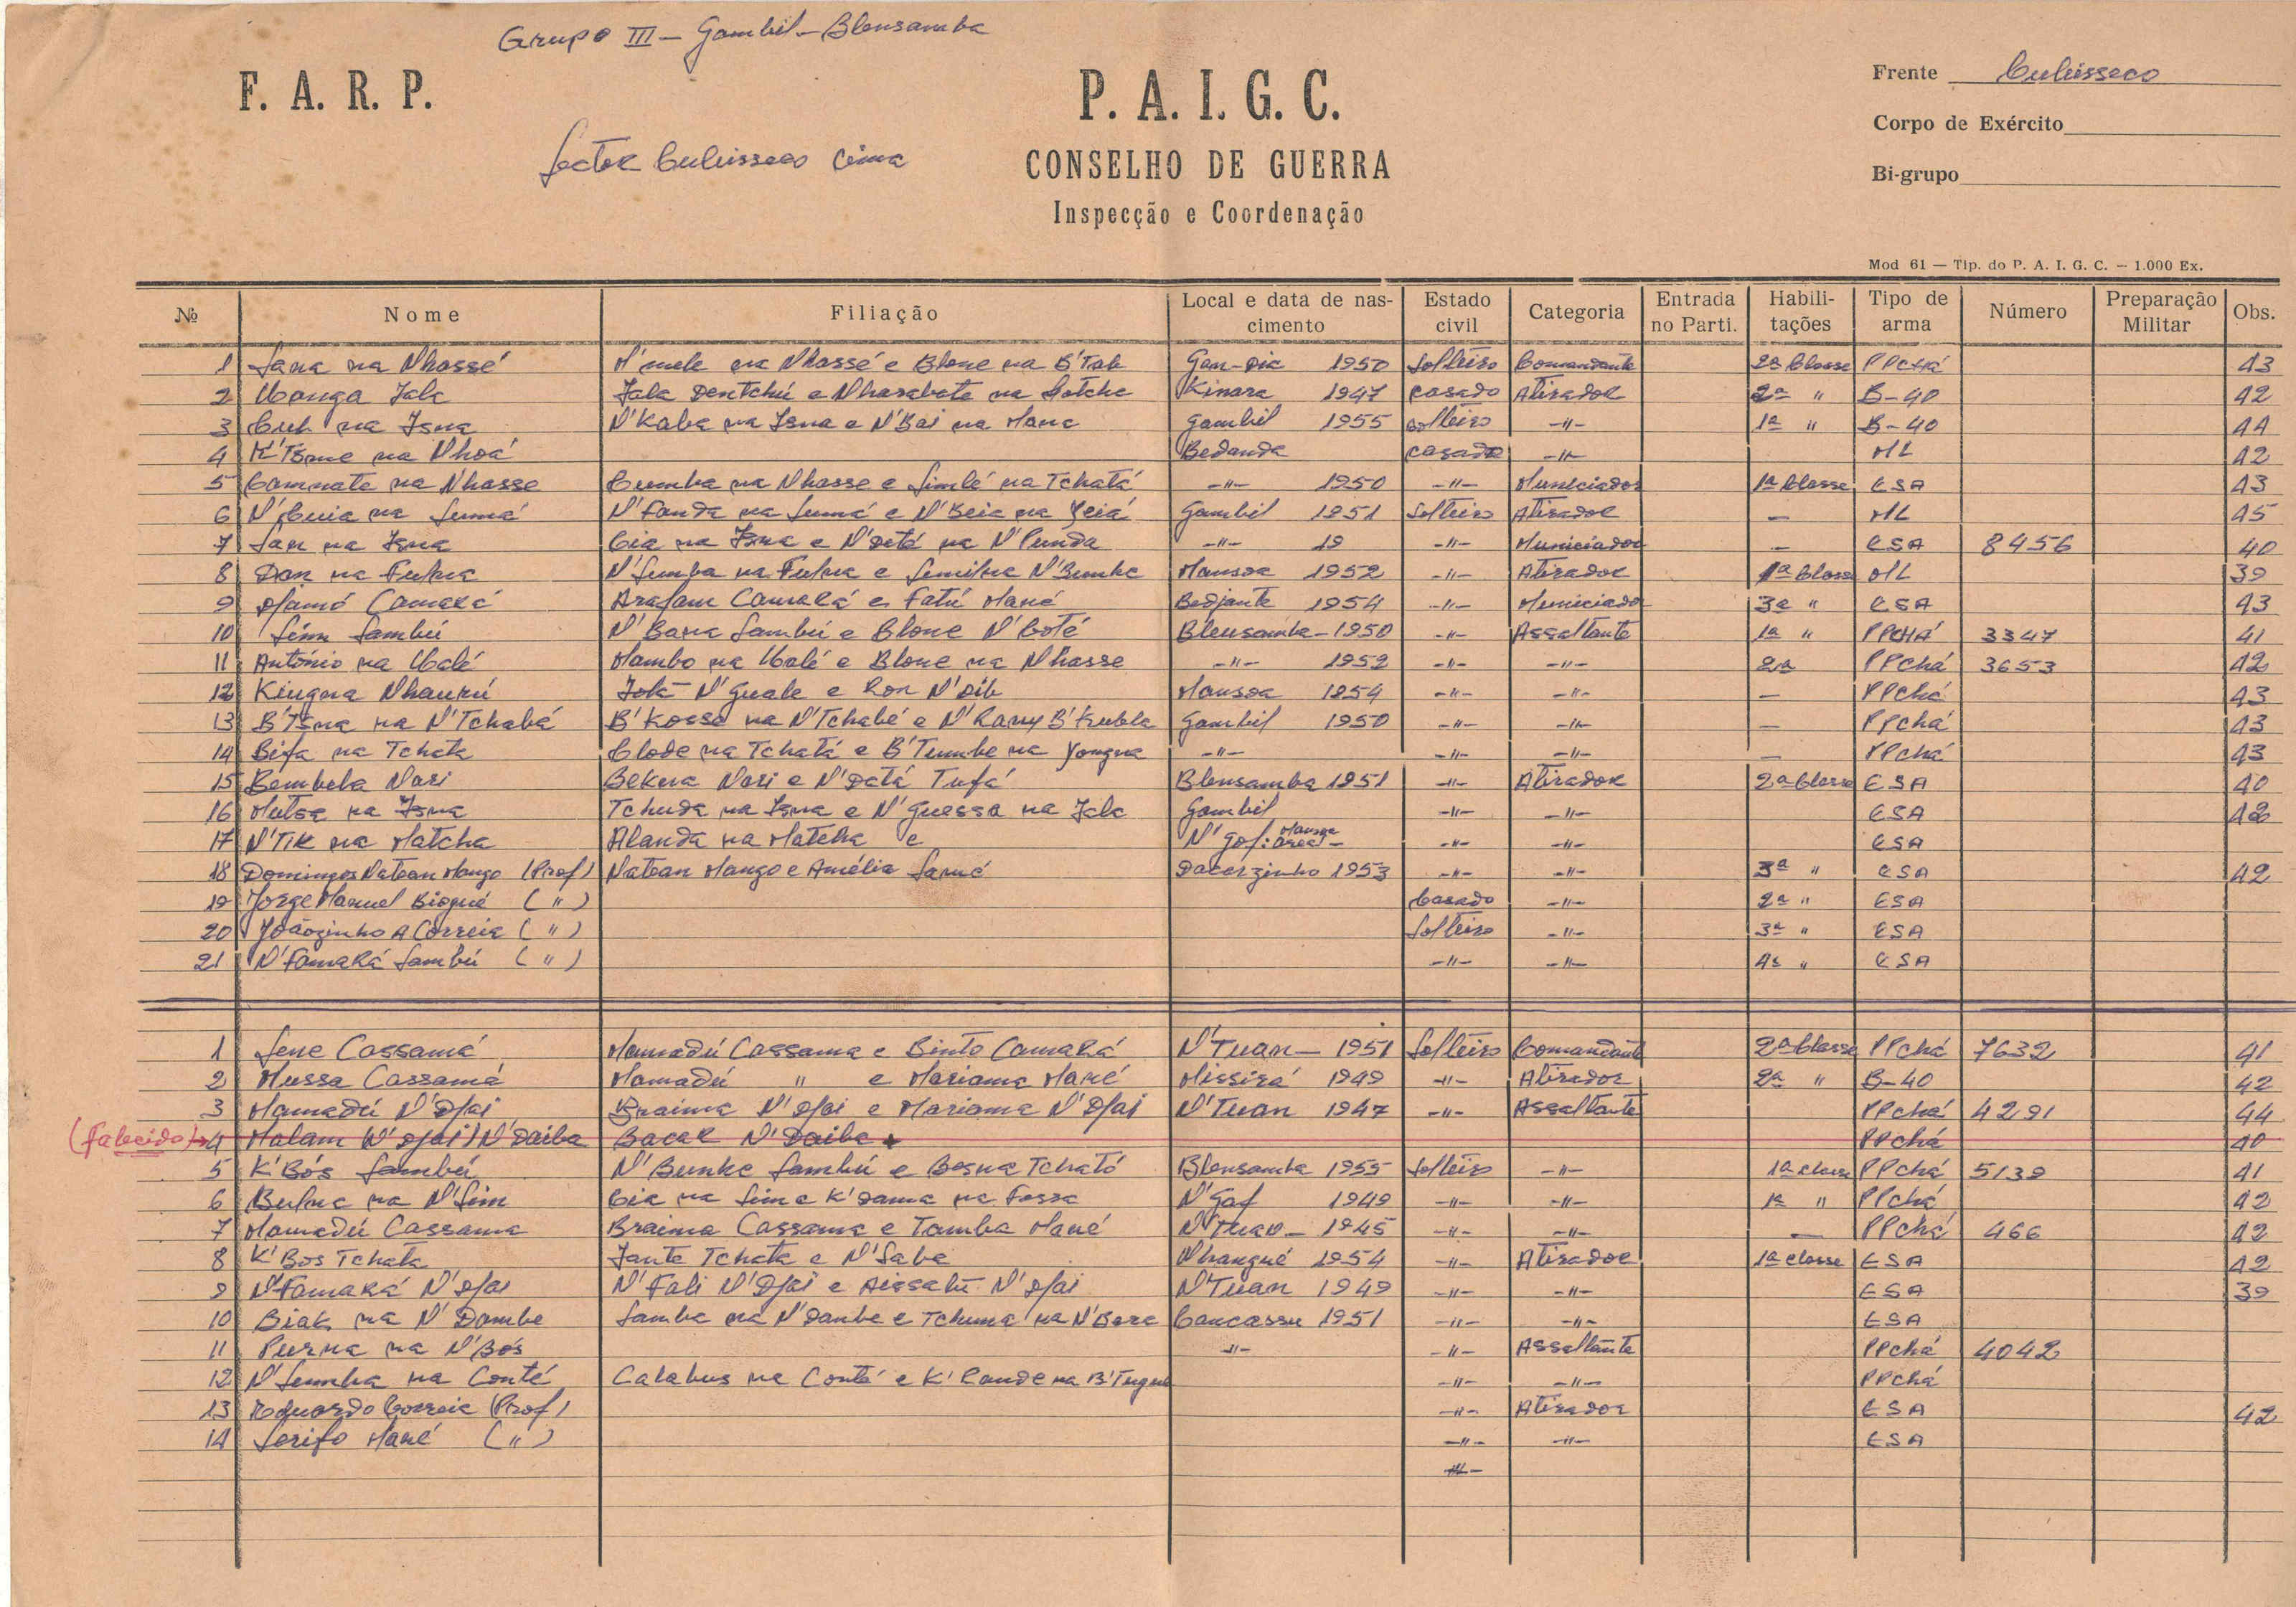 Grupo III - Gambil - Blensamba
F. A. R. P.
P. A. I. G. C.
Frente Cubisseco
Sector Cubisseco Cima
CONSELHO DE GUERRA
Corpo de Exército
Inspecção e Coordenação
Bi-grupo
Mod 61 — Tip. do P. A. I. G. C. — 1.000 Ex.
№ Nome Filiação Local e data de nascimento Estado civil Categoria Entrada no Parti. Habilitações Tipo de arma Número Preparação Militar Obs.
1 Sana na Nhassé M'mele na Nhassé e Blone na B'Tab Gan-Dia 1950 Solteiro Comandante 2ª Classe PPCHÁ 43
2 Ubanga Jala Jala Dentchú e Nharabote na Kinara 1947 casado Atirador 2ª " B-40 42
3 na Isna N'Kaba na Isna e N'Bai na Mana Gambil 1955 solteiro -"- 1ª " B-40 44
4 na Nhoá Bedanda casado -"- ML 42
5 Camnate na Nhasse Cumba na Nhasse e Simlé na Tchatá -"- 1950 -"- Municiador 1ª Classe ESA 43
6 na Sumá N'Fanda na Sumá e N'Beia na Yeiá Gambil 1951 Solteiro Atirador — ML 45
7 San na Isna Cia na Isna e N'Deté na N'Punda -"- 19 -"- Municiador — ESA 8456 40
8 Dan na Fulna N'Sumba na Fulna e Similna N'Bunke Mansoa 1952 -"- Atirador 1ª Classe ML 39
9 Mamó Camará Arafam Camará e Fatú Mané Bedjante 1954 -"- Municiador 3ª " ESA 43
10 Sénu Sambú N'Bana Sambú e Blone N'Boté Blensamba - 1950 -"- Assaltante 1ª " PPCHÁ 3347 41
11 António na Ubalé Mambo na Ubalé e Blone na Nhasse -"- 1952 -"- -"- 2ª PPchá 3653 42
12 Kingna Nhaurú N'Guale e Ron N'Dib Mansoa 1954 -"- -"- — PPchá 43
13 B'Isna na N'Tchabá B'Kosse na N'Tchabé e N'Rany B'Kubla Gambil 1950 -"- -"- — PPchá 43
14 Bifa na Tchata Clode na Tchatá e B'Tumbe na Yongna -"- -"- -"- — PPchá 43
15 Bembela Nari Bekena Nari e N'Datá Tufá Blensamba 1951 -"- Atirador 2ª Classe ESA 40
16 Mutsa na Isna Tchuda na Isna e N'Guessa na Jala Gambil -"- -"- ESA
17 N'Tik na Matcha Alanda na Matcha e N'Gof: Mansoa -"- -"- ESA
18 Domingos Natoan Mango (Prof) Natoan Mango e Amélia Samé Dacerzinho 1953 -"- -"- 3ª " ESA 42
19 Jorge Manuel Biogué ( " ) Casado -"- 2ª " ESA
20 Joãozinho A Correia ( " ) Solteiro -"- 3ª " ESA
21 N'Famará Sambú ( " ) -"- -"- 4ª " ESA
1 Sene Cassamá Mamadú Cassama e Binto Camará N'Tuan - 1951 Solteiro Comandante 2ª Classe PPchá 7632 41
2 Mussa Cassamá Mamadú " e Mariama Mané Missirá 1949 -"- Atirador 2ª " B-40 42
3 Mamadú N'Djai Braima N'Djai e Mariama N'Djai N'Tuan 1947 -"- Assaltante PPchá 4291 44
(Falecido) 4 Malam (N'Djai) N'Daiba Bacar N'Daiba PPchá 40
5 K'Bós Sambú N'Bunke Sambú e Bosna Tcható Blensamba 1955 Solteiro -"- 1ª classe PPchá 5139 41
6 Bulna na N'Sim Cia na Sim e K'Dama na Fossa N'Gaf 1949 -"- -"- 1ª " PPchá 42
7 Mamadú Cassama Braima Cassama e Tamba Mané N'Tuan - 1945 -"- -"- — PPchá 466 42
8 K'Bos Tchata Jante Tchata e N'Saba Nhangué 1954 -"- Atirador 1ª classe ESA 42
9 N'Famará N'Djai N'Fali N'Djai e Aissatú N'Djai N'Tuan 1949 -"- -"- ESA 39
10 Biak na N'Dambe Samba na N'Danbe e Tchuma na N'Bera Cancassu 1951 -"- -"- ESA
11 Purna na N'Bós -"- -"- Assaltante PPchá 4042
12 N'Sumba na Conté Calabus na Conté e K'Rande na -"- -"- PPchá
13 Eduardo Correia (Prof) -"- Atirador ESA 42
14 Serifo Mané ( " ) -"- -"- ESA
-"-